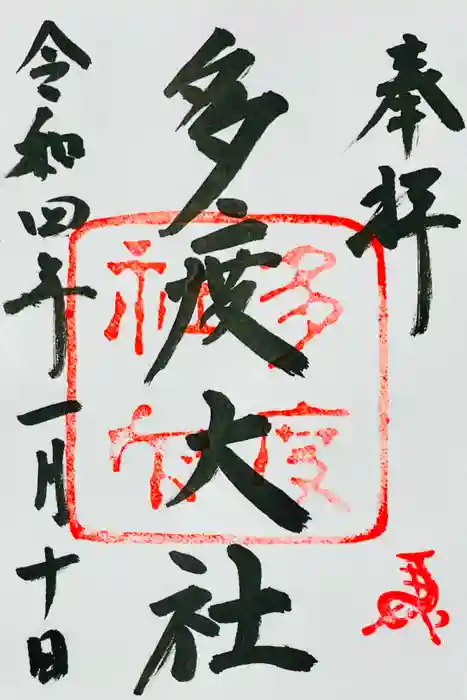 奉拝
多度大社
多度
神社
令和四年一月十日